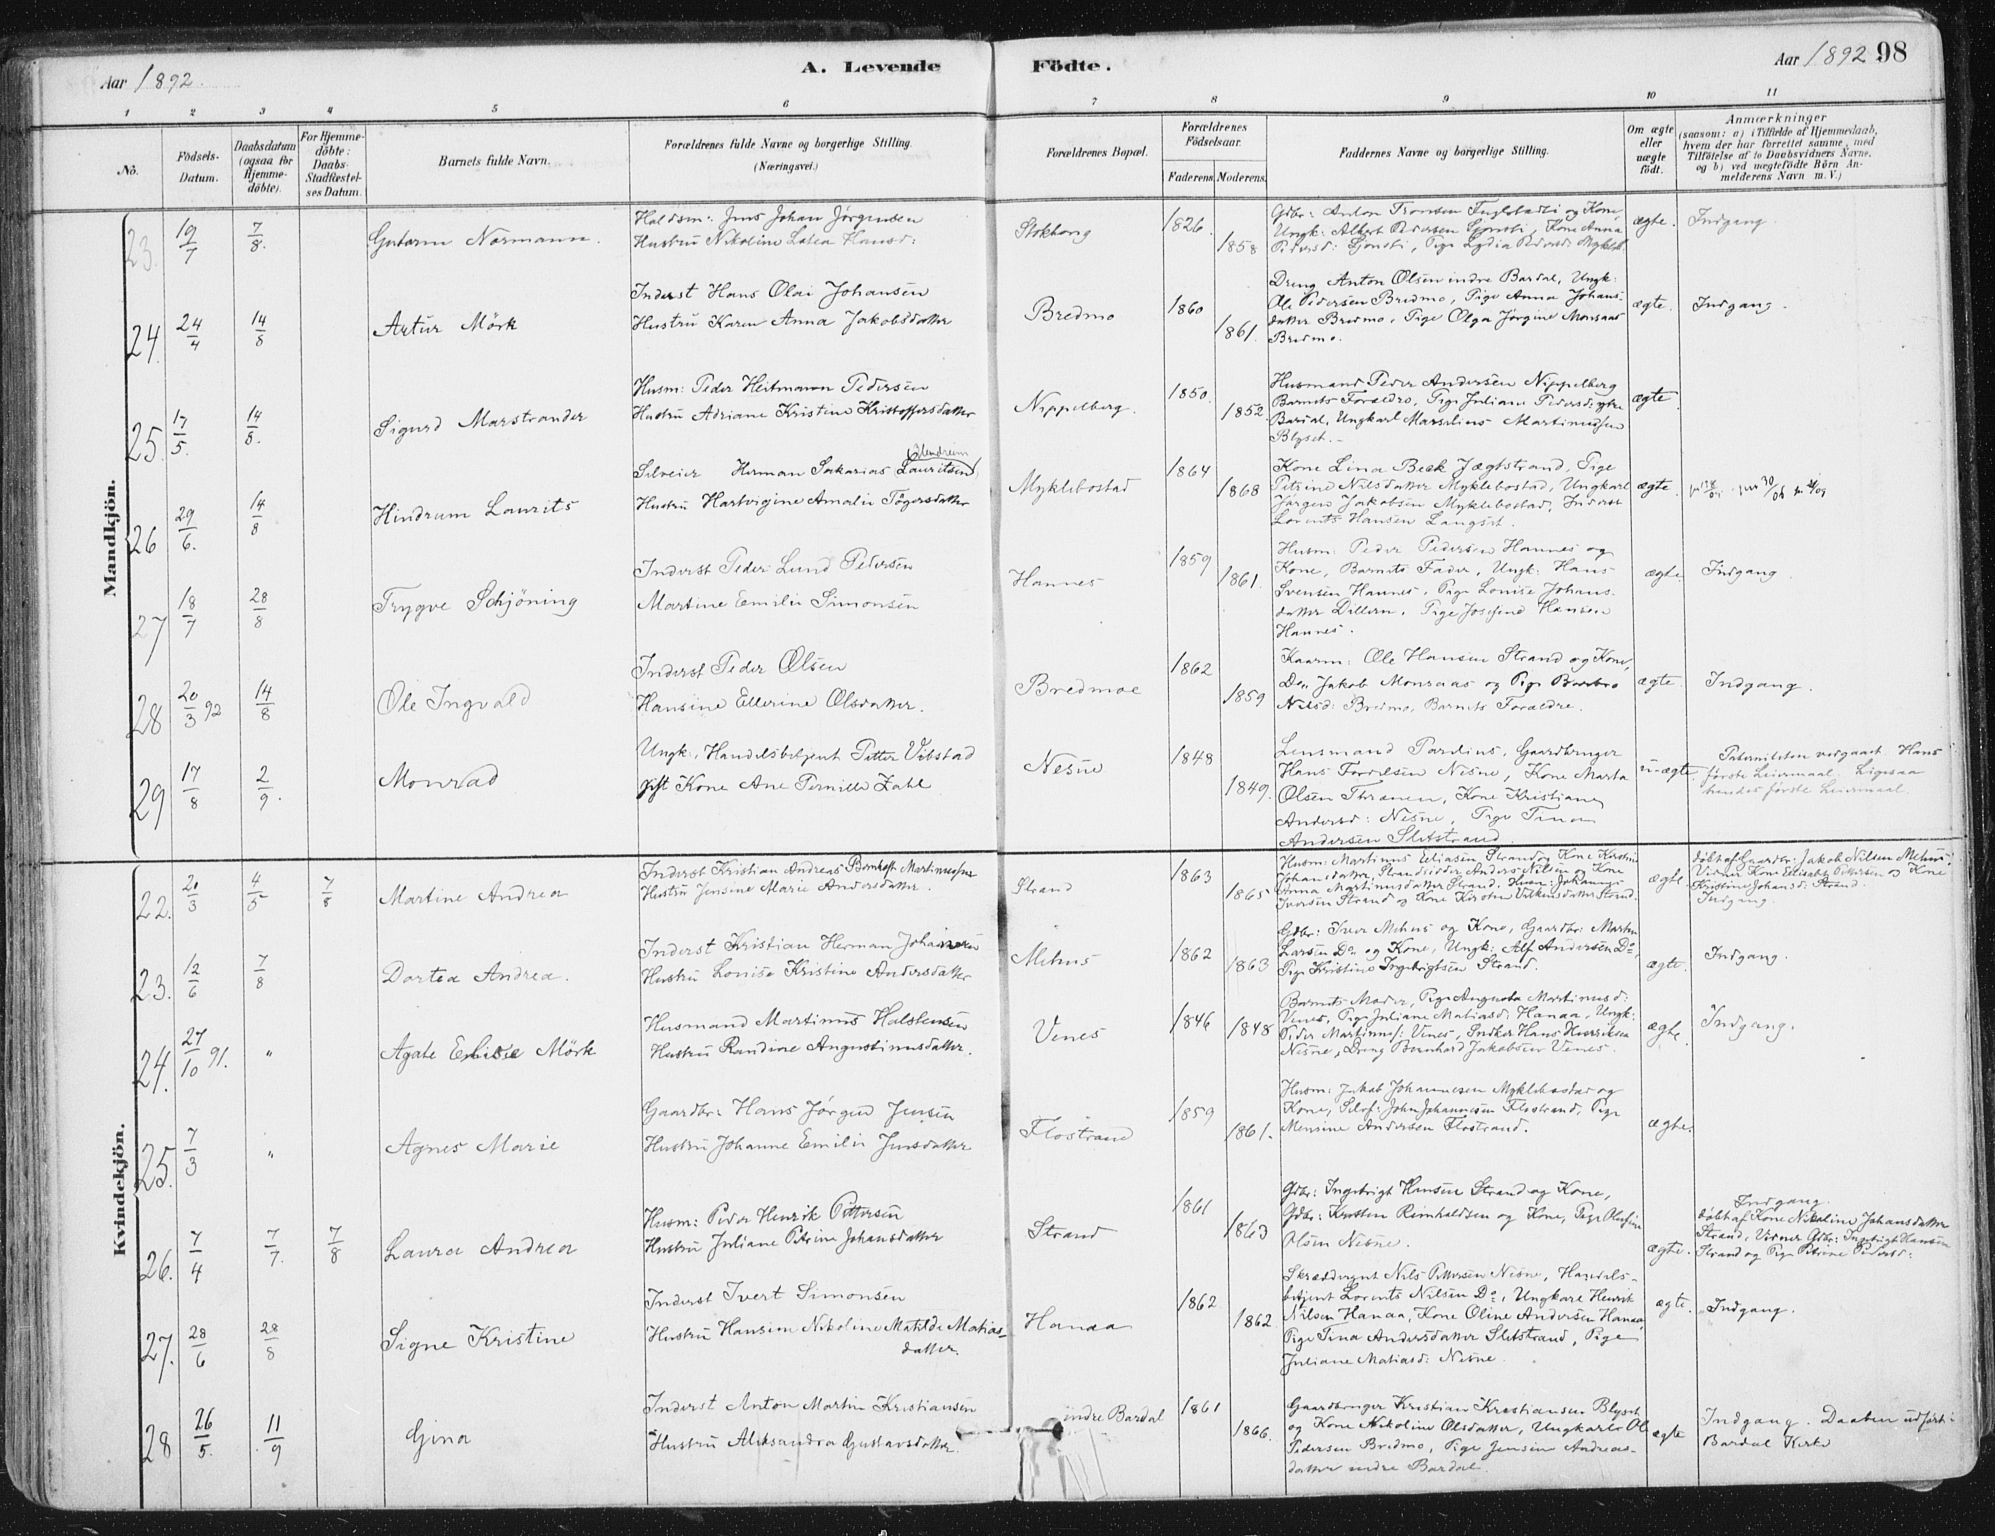 Aar 1892.
A. Levende
Födte.
Aar 1892 98
1 2 3 4 5 6 7 8 9 10 11
No.
Födsels-Datum.
Daabsdatum (ogsaa for Hjemme-döbte).
For Hjemme-döbte: Daabs-Stadfæstel-ses Datum.
Barnets fulde Navn.
Forældrenes fulde Navne og borgerlige Stilling.
(Næringsvei.)
Forældrenes Bopæl.
Forældrenes Födselsaar.
Faderens. Moderens.
Faddernes Navne og borgerlige Stilling.
Om ægte eller uægte födt.
Anmærkninger
(saasom: a) i Tilfælde af Hjemmedaab,
hvem der har forrettet samme, med
Tilföielse af to Daabsvidners Navne,
og b) ved uægtefödte Börn An-
melderens Navn m. V.)
Mandkjön.
23. 19/7 7/8. Gutorm Normann.
Hustru Nikoline Lovea Hansd:
Stokbong 1826. 1858
Gdbr: Anton Tronsen Fuglstadli og Kone,
Ungk: Albert Pedersen Sjonsti, Kone Anna
Pedersd: Sjonsti, Pige Lydia Pedersd: Myklebst.
ægte. Indgang.
24. 24/4 14/8 Artur Mörk
Inderst Hans Olai Johansen
Hustru Karen Anna Jakobsdatter
Bredmo 1860 1861.
Dreng Anton Olsen indre Bardal, Ungk:
Ole Pedersen Bredmo, Pige Anna Johans-
datter Bredmo, Pige Olga Jørgine Monsaas
Bredmo.
ægte. Indgang.
25. 17/5. 14/8. Sigurd Marstrander
Husm: Peder Heitmann Pedersen
Hustru Adriane Kristine Kristoffersdatter
Nippelberg. 1850. 1852.
Husmand Peder Andersen Nippelberg
Barnets Forældre, Pige Juliane Pedersd: ytre
Bardal, Ungkarl Marselius Martinussen
Blyset.
ægte.
26 29/6. 14/8 Hindrum Laurits
Herman Sakarias Lauritsen
Hustru Hartvigine Amalie Tögersdatter
Myklebostad 1864 1868
Kone Lina Beck Jægtstrand, Pige
Petrine Nilsdatter Myklebostad, Ungkarl
Jørgen Jakobsen Myklebostad, Inderst
Lorents Hansen Langset.
ægte.
27 18/7 28/8 Trygve Schjöning
Inderst Peder Lund Pedersen
Martine Emilie Simonsen
Hannes 1859 1861.
Husm: Peder Pedersen Hannes og
Kone, Barnets Fader, Ungk: Hans
Svensen Hannes, Pige Lovise Johans-
datter Dillern, Pige Josefine Hansen
Hannes.
ægte Indgang.
28 20/3 92 14/8 Ole Ingvald
Inderst Peder Olsen
Hansine Ellerine Olsdatter.
Bredmoe 1862 1859
Kaarm: Ole Hansen Strand og Kone,
Do Jakob Monsaas og Pige Barbro
Nilsd: Bredmo, Barnets Forældre.
ægte. Indgang.
29 17/8 2/9. Monrad
Ungk: Handelsbetjent Petter Vibstad
gift Kone Ane Pernille Zahl
Nesne 1848 1849.
Lensmand Pardlius, Gaardbruger
Nesne, Kone Marta
Olsen Thranen, Kone Kristiane
Andersd: Nesne, Pige Tina
Andersen Sletstrand
u-ægte
Paterniteten vedgaaet. Hans
første Leiermaal. Ligesaa
hendes første Leiermaal.
Kvindekjön.
22. 20/3 4/5 7/8 Martine Andrea
Inderst Kristian Andreas Bernhoft Martinussen
Hustru Jensine Marie Andersdatter.
Strand 1863 1865
Husm: Martinus Eliasen Strand og Kone
Johansdatter, Strandsidder Anders Nilsen og Kone
Anna Martinusdatter Strand, Johannes
Iversen Strand og Kone Kirsten Strand.
ægte
döbt af Gaardbr: Jakob Nilsen Mehus.
Vidner Kone Elisabet Pettersen og Kone
Kristine Johansd: Strand.
Indgang.
23. 12/6 7/8 Dortea Andrea.
Inderst Kristian Herman Johansen
Hustru Lovise Kristine Andersdatter
Mehus 1862 1863
Gdbr: Iver Mehus og Kone, Gaardbr: Martin
Larsen Do og Kone, Ungk: Alf Andersen Do,
Pige Kristine Ingebrigtsen Strand.
ægte. Indgang.
24. 27/10 91. " Agate Elisie Mörk
Husmand Martinus Halstensen
Hustru Randine Augustinusdatter.
Venes 1846 1848
Barnets Moder, Pige Augusta Martinusd:
Venes, Pige Juliane Matiasd: Hanaa, Ungk:
Peder Martinuss: Venes, Hans Henriksen
Nesne, Dreng Bernhard Jakobsen Venes.
ægte. Indgang.
25. 7/3 " Agnes Marie
Gaardbr: Hans Jørgen Jensen
Hustru Johanne Emilie Jensdatter
Flostrand 1859 1861.
Husm: Jakob Johannesen Myklebostad og
Kone, Selvf: John Johannesen Flostrand, Pige
Mensine Andersen Flostrand.
ægte.
26. 7/4 7/7. 7/8 Laura Andrea
Husm: Peder Henrik Pettersen
Hustru Juliane Petrine Johansdatter
Strand 1861 1863
Gdbr: Ingebrigt Hansen Strand og Kone,
Gdbr: Kristen Reinholdsen og Kone, Pige Olufine
Olsen Nesne.
ægte.
Indgang.
döbt af Kone Nikoline Johansdatter
Strand, Vidner Gdbr: Ingebrigt Hansen
Strand og Pige Petrine Pedersd:
27. 28/6 28/8 Signe Kristine
Inderst Ivert Simonsen
Hustru Hansine Nikoline Matilde Matias-
datter.
Hanaa 1862 1862
Skræddersvent Nils Pettersen Nesne, Handels-
betjent Lorents Nilsen Do, Ungkarl Henrik
Nilsen Hanaa, Kone Oline Andersen Hanaa,
Pige Tina Andersdatter Sletstrand, Pige
Juliane Matiasd: Nesne.
ægte. Indgang.
28 26/5. 11/9 Gina
Inderst Anton Martin Kristiansen
Hustru Aleksandra Gustavsdatter.
indre Bardal 1861 1866.
Gaardbruger Kristian Kristiansen Blyset
og Kone Nikoline Olsdatter, Ungkarl Ole
Pedersen Bredmo, Pige Jensine Andreas-
datter indre Bardal.
ægte
Indgang. Daaben udfört i
Bardal Kirke